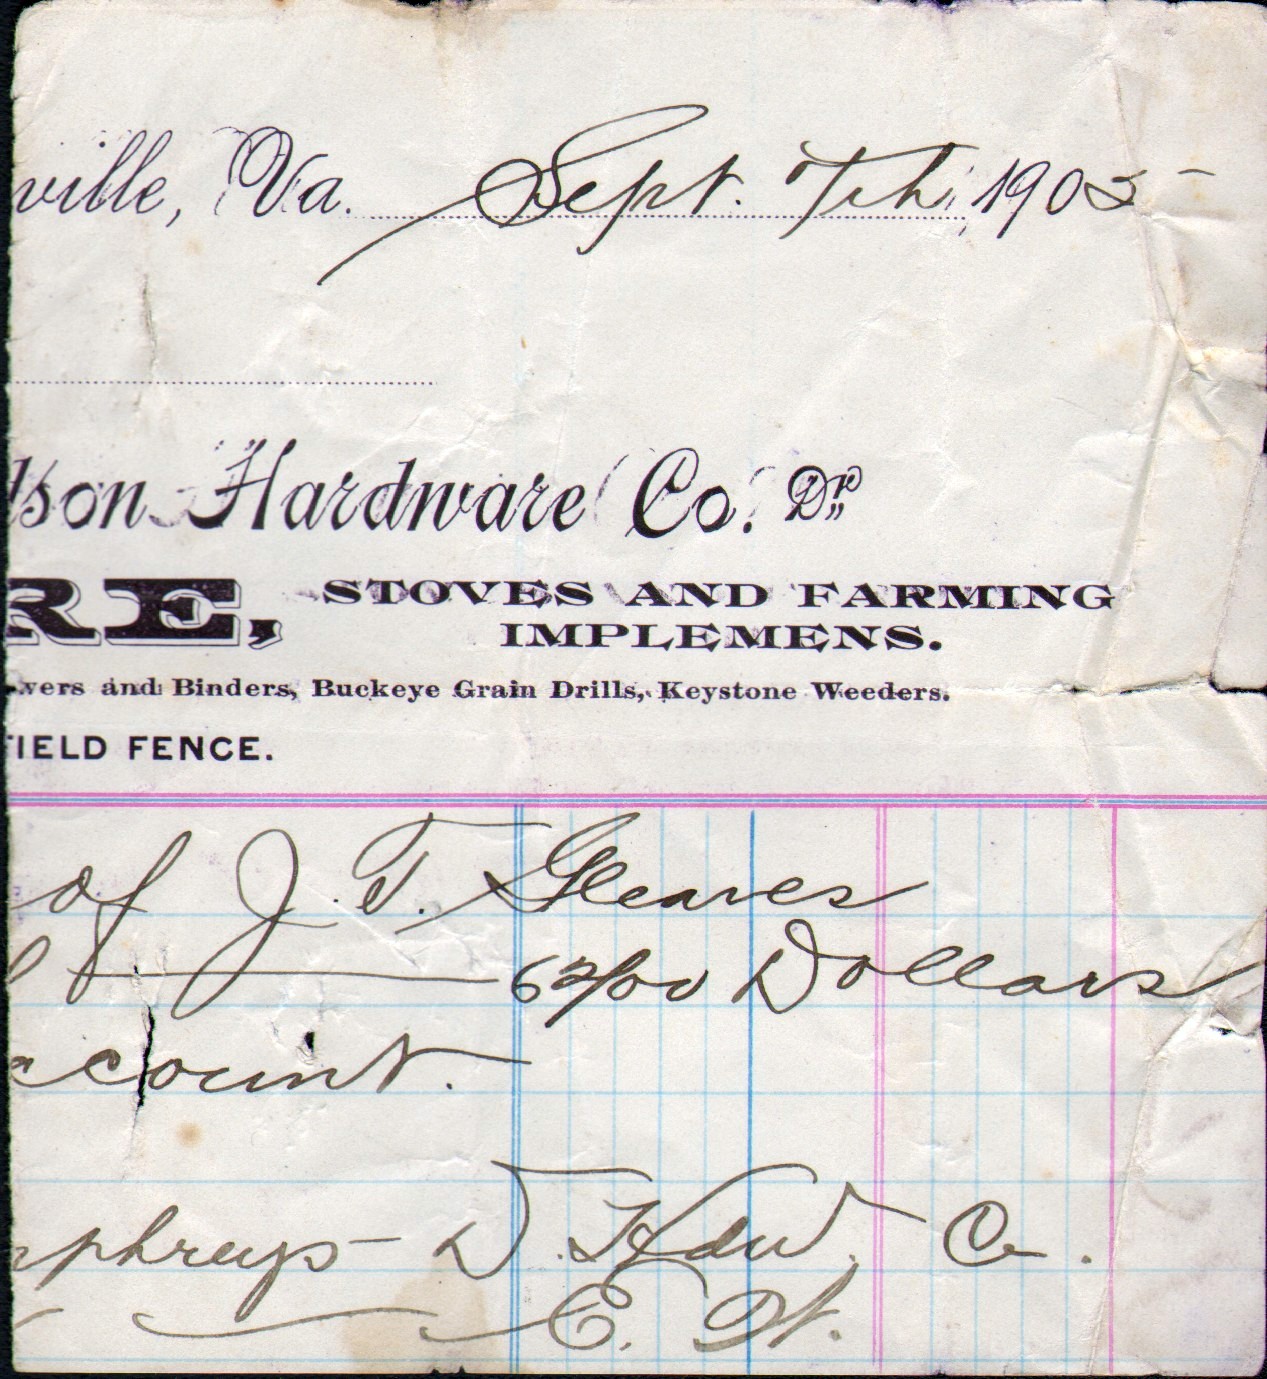 ville, Va. Sept. 7th, 1905
dson Hardware Co. Dr.
RE, STOVES AND FARMING
IMPLEMENS.
wers and Binders, Buckeye Grain Drills, Keystone Weeders.
FIELD FENCE.
of J. T. Gleaves
Dollars
ccount.
mphreys D. Hdw. Co.
E. H.